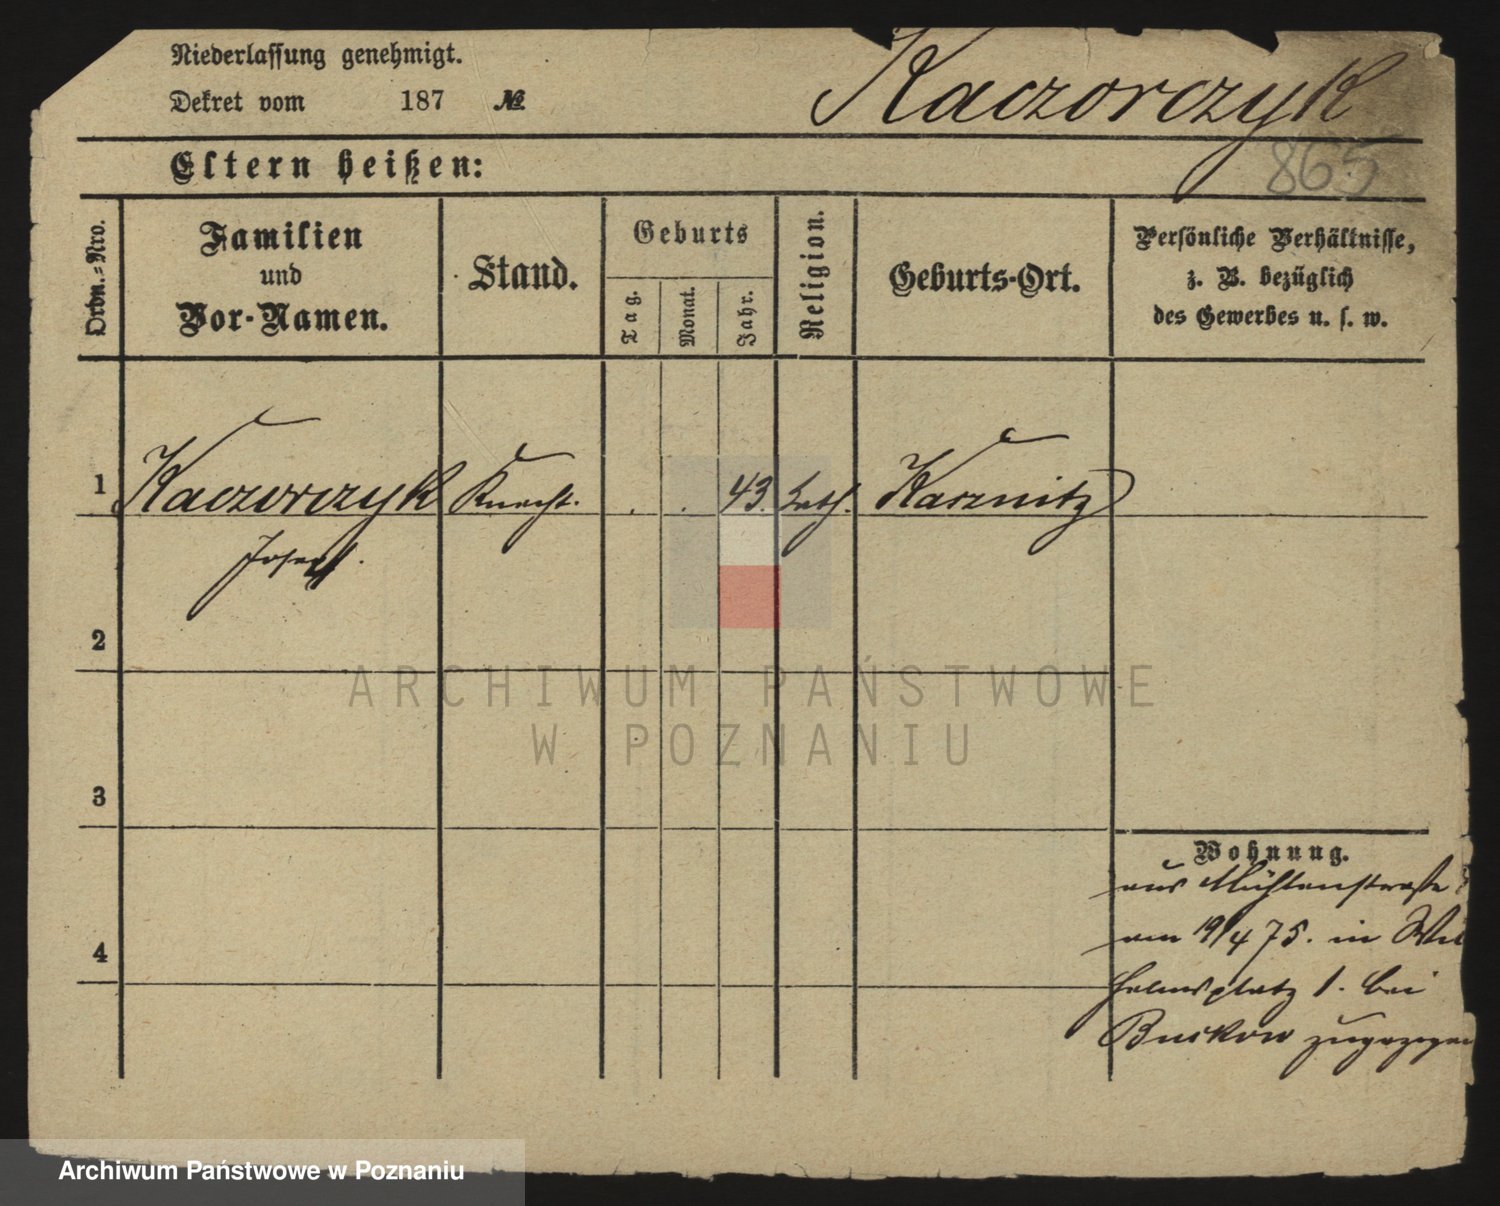 Niederlassung genehmigt.
Dekret vom 187 №
Kaczorczyk
865
Eltern heißen:
Ordn.=Nro.
Familien
und
Vor-Namen.
Stand.
Geburts
Tag.
Monat.
Jahr.
Religion.
Geburts-Ort.
Persönliche Verhältnisse,
z. B. bezüglich
des Gewerbes u. s. w.
1 Kaczorczyk Knecht. . . 43. kath. Kaznitz
Josef.
2
3
4
Wohnung.
aus Mühlenstraße
am 19/4 75. in Wil
helmsplatz 1. bei
Buckow zugezogen
ARCHIWUM PAŃSTWOWE
W POZNANIU
Archiwum Państwowe w Poznaniu